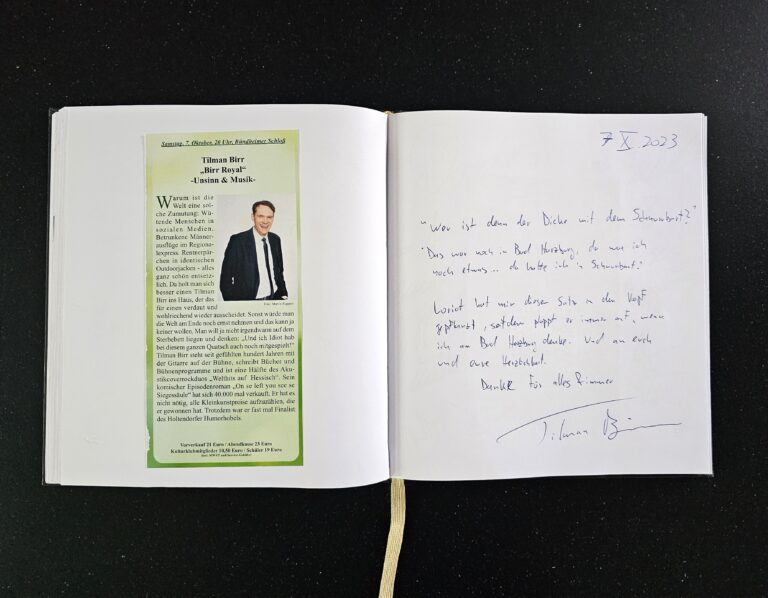 Samstag, 7. Oktober, 20 Uhr, Bündheimer Schloß
Tilman Birr
„Birr Royal“
-Unsinn & Musik-
Warum ist die
Welt eine sol-
che Zumutung: Wü-
tende Menschen in
sozialen Medien.
Betrunkene Männer-
ausflüge im Regional-
express. Rentnerpär-
chen in identischen
Outdoorjacken - alles
ganz schön entsetz-
lich. Da holt man sich
besser einen Tilman
Birr ins Haus, der das
für einen verdaut und
wohlriechend wieder ausscheidet. Sonst würde man
die Welt am Ende noch ernst nehmen und das kann ja
keiner wollen. Man will ja nicht irgendwann auf dem
Sterbebett liegen und denken: „Und ich Idiot hab
bei diesem ganzen Quatsch auch noch mitgespielt!“
Tilman Birr steht seit gefühlten hundert Jahren mit
der Gitarre auf der Bühne, schreibt Bücher und
Bühnenprogramme und ist eine Hälfte des Aku-
stikcoverrockduos „Welthits auf Hessisch“. Sein
komischer Episodenroman „On se left you see se
Siegessäule“ hat sich 40.000 mal verkauft. Er hat es
nicht nötig, alle Kleinkunstpreise aufzuzählen, die
er gewonnen hat. Trotzdem war er fast mal Finalist
des Holtendorfer Humorhobels.
Vorverkauf 21 Euro / Abendkasse 23 Euro
Kulturklubmitglieder 10,50 Euro / Schüler 19 Euro
7 X 2023
"Wer ist denn der Dicke mit dem Schnurrbart?"
"Das war noch in Bad Harzburg, da war ich
noch etwas... da hatte ich 'n Schnurrbart."
Loriot hat mir diesen Satz in den Kopf
gepflanzt, seitdem ploppt er immer auf, wenn
ich an Bad Harzburg denke. Und an euch
und eure Herzlichkeit.
Danke für alles &immer
Tilman Birr